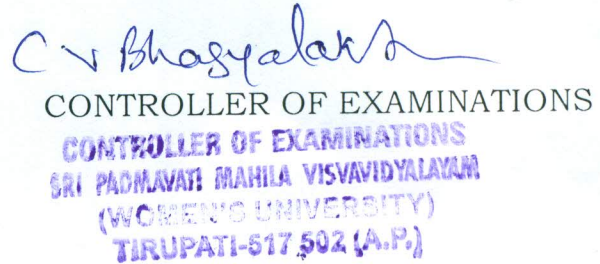 C V Bhagyalaksh
CONTROLLER OF EXAMINATIONS
CONTROLLER OF EXAMINATIONS
SRI PADMAVATI MAHILA VISVAVIDYALAYAM
(WOMEN'S UNIVERSITY)
TIRUPATI-517 502 (A.P.)